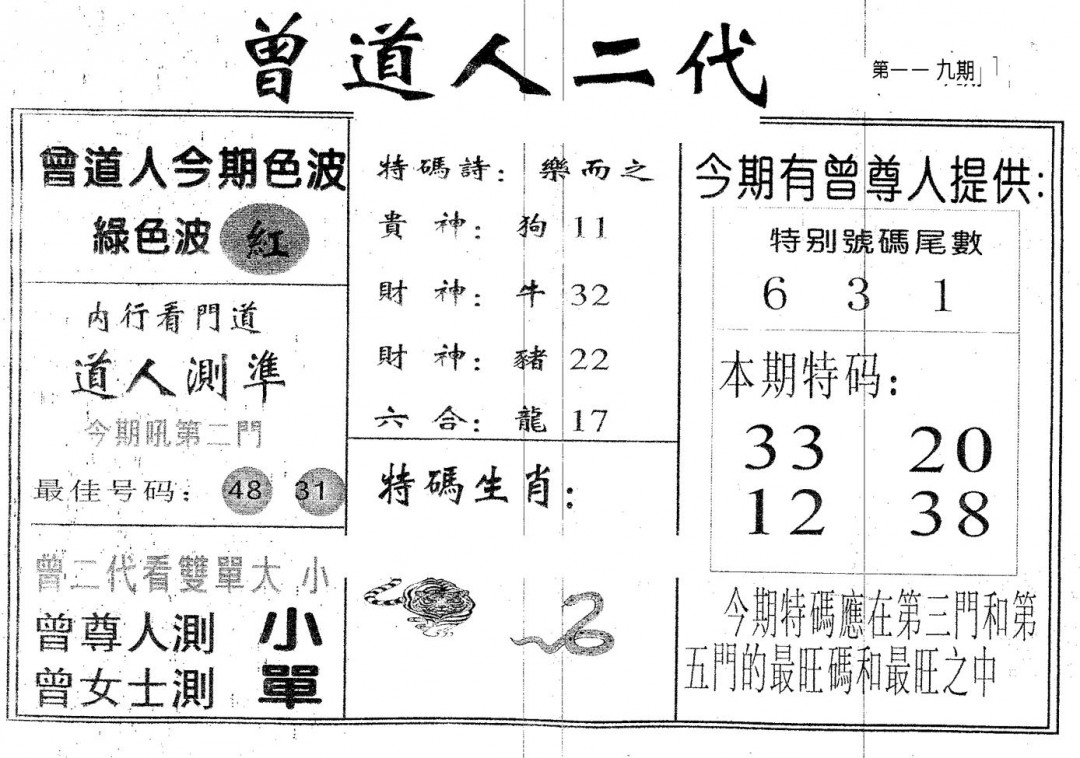 曾道人二代
第一一九期
曾道人今期色波
綠色波 紅
内行看門道
道人測準
今期吼第二門
最佳号码： 48 31
曾二代看雙單大 小
曾尊人測 小
曾女士測 單
特碼詩： 樂而之
貴 神： 狗 11
財 神： 牛 32
財 神： 豬 22
六 合： 龍 17
特碼生肖：
今期有曾尊人提供：
特别號碼尾數
6 3 1
本期特码：
33 20
12 38
今期特碼應在第三門和第
五門的最旺碼和最旺之中